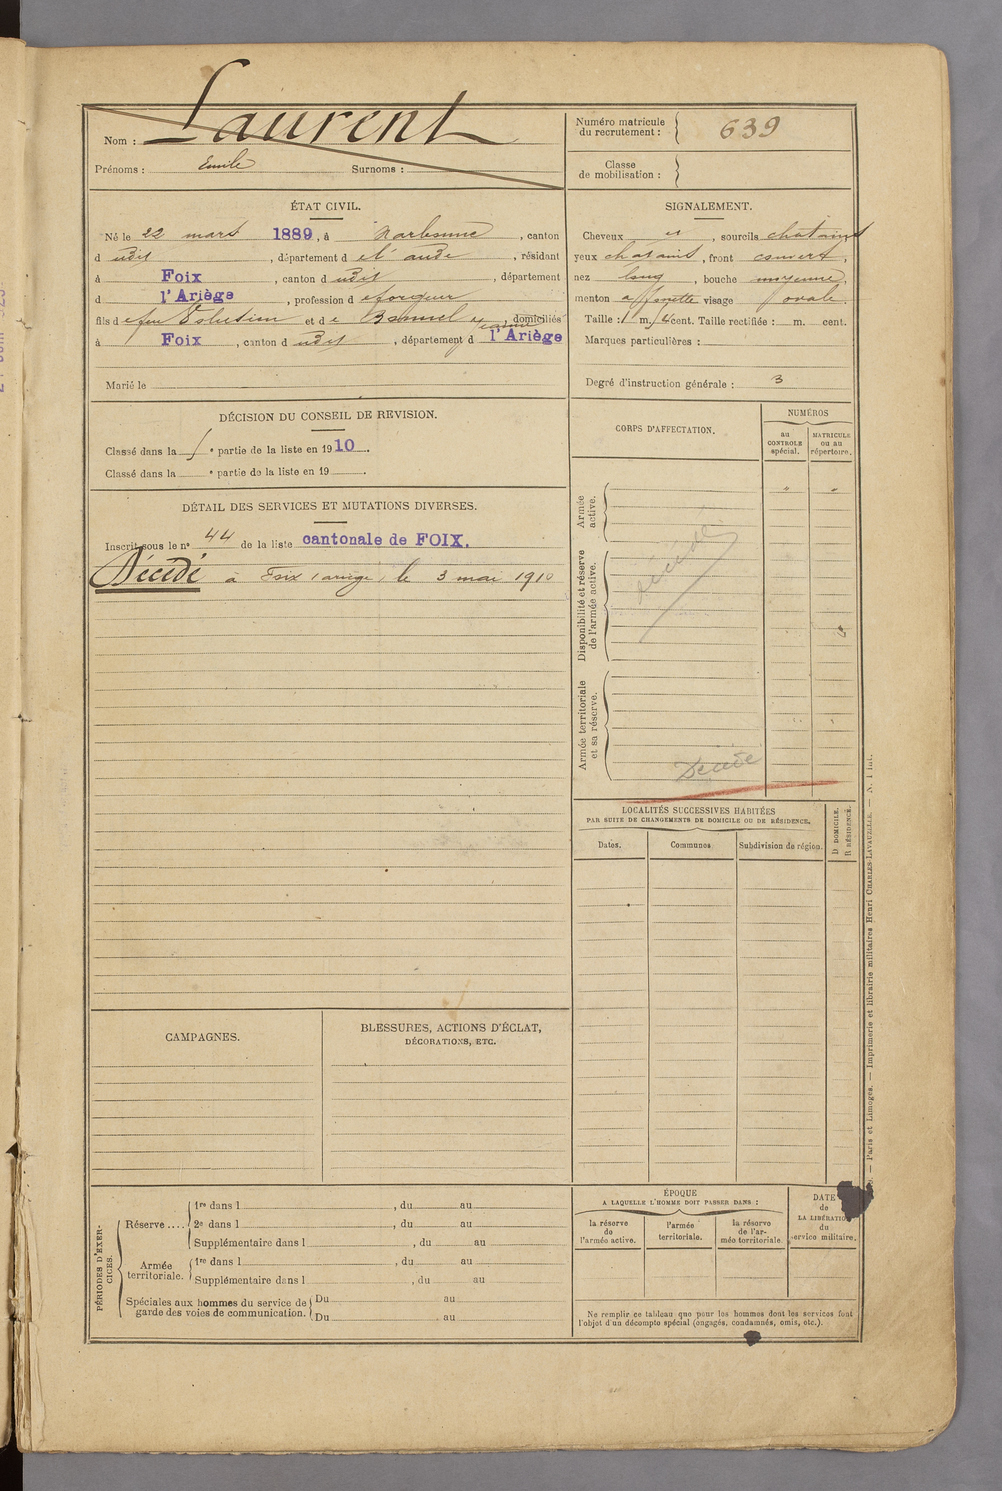 Nom : Laurent
Prénoms : Emile Surnoms :
Numéro matricule
du recrutement : 639
Classe
de mobilisation :
ÉTAT CIVIL.
Né le 22 mars 1889, à Narbonne, canton
dudit, département de l'aude, résidant
à Foix, canton dudit, département
d l'Ariège, profession de forgeur
fils de feu et de domiciliés
à Foix, canton dudit, département d l'Ariège
Marié le
SIGNALEMENT.
Cheveux et, sourcils chatains
yeux chatains, front couvert,
nez long, bouche moyenne,
menton a fossette visage ovale.
Taille : 1 m. cent. Taille rectifiée : m. cent.
Marques particulières :
Degré d'instruction générale : 3
DÉCISION DU CONSEIL DE REVISION.
Classé dans la partie de la liste en 1910.
Classé dans la e partie de la liste en 19 .
DÉTAIL DES SERVICES ET MUTATIONS DIVERSES.
Inscrit sous le n° 44 de la liste cantonale de FOIX.
Décédé à Foix (ariège) le 3 mai 1910
CORPS D'AFFECTATION.
NUMÉROS
au
CONTROLE
spécial.
MATRICULE
ou au
répertoire.
Armée
active.
" "
Disponibilité et réserve
de l'armée active.
décédé
Armée territoriale
et sa réserve.
Décédé
LOCALITÉS SUCCESSIVES HABITÉES
PAR SUITE DE CHANGEMENTS DE DOMICILE OU DE RÉSIDENCE.
Dates.
Communes
Subdivision de région.
D DOMICILE.
R RÉSIDENCE.
CAMPAGNES.
BLESSURES, ACTIONS D'ÉCLAT,
DÉCORATIONS, ETC.
PÉRIODES D'EXER-
CICES.
Réserve....
1re dans l , du au
2e dans l , du au
Supplémentaire dans l , du au
Armée
territoriale.
1re dans l , du au
Supplémentaire dans l , du au
Spéciales aux hommes du service de
garde des voies de communication.
Du au
Du au
ÉPOQUE
A LAQUELLE L'HOMME DOIT PASSER DANS :
la réserve
de
l'armée active.
l'armée
territoriale.
la réserve
de l'ar-
mée territoriale.
DATE
de
LA LIBÉRATION
du
service militaire.
Ne remplir ce tableau que pour les hommes dont les services font
l'objet d'un décompte spécial (engagés, condamnés, omis, etc.).
— Paris et Limoges. — Imprimerie et librairie militaires Henri CHARLES-LAVAUZELLE. —